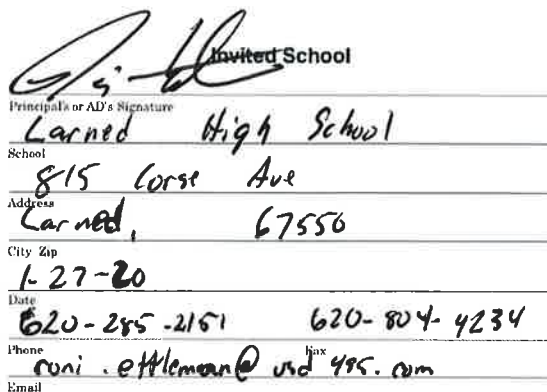 Invited School
Principal's or AD's Signature
Larned High School
School
815 Corse Ave
Address
Larned, 67550
City Zip
1-27-20
Date
620-285-2151 620-804-4234
Phone Fax
@usd495.com
Email